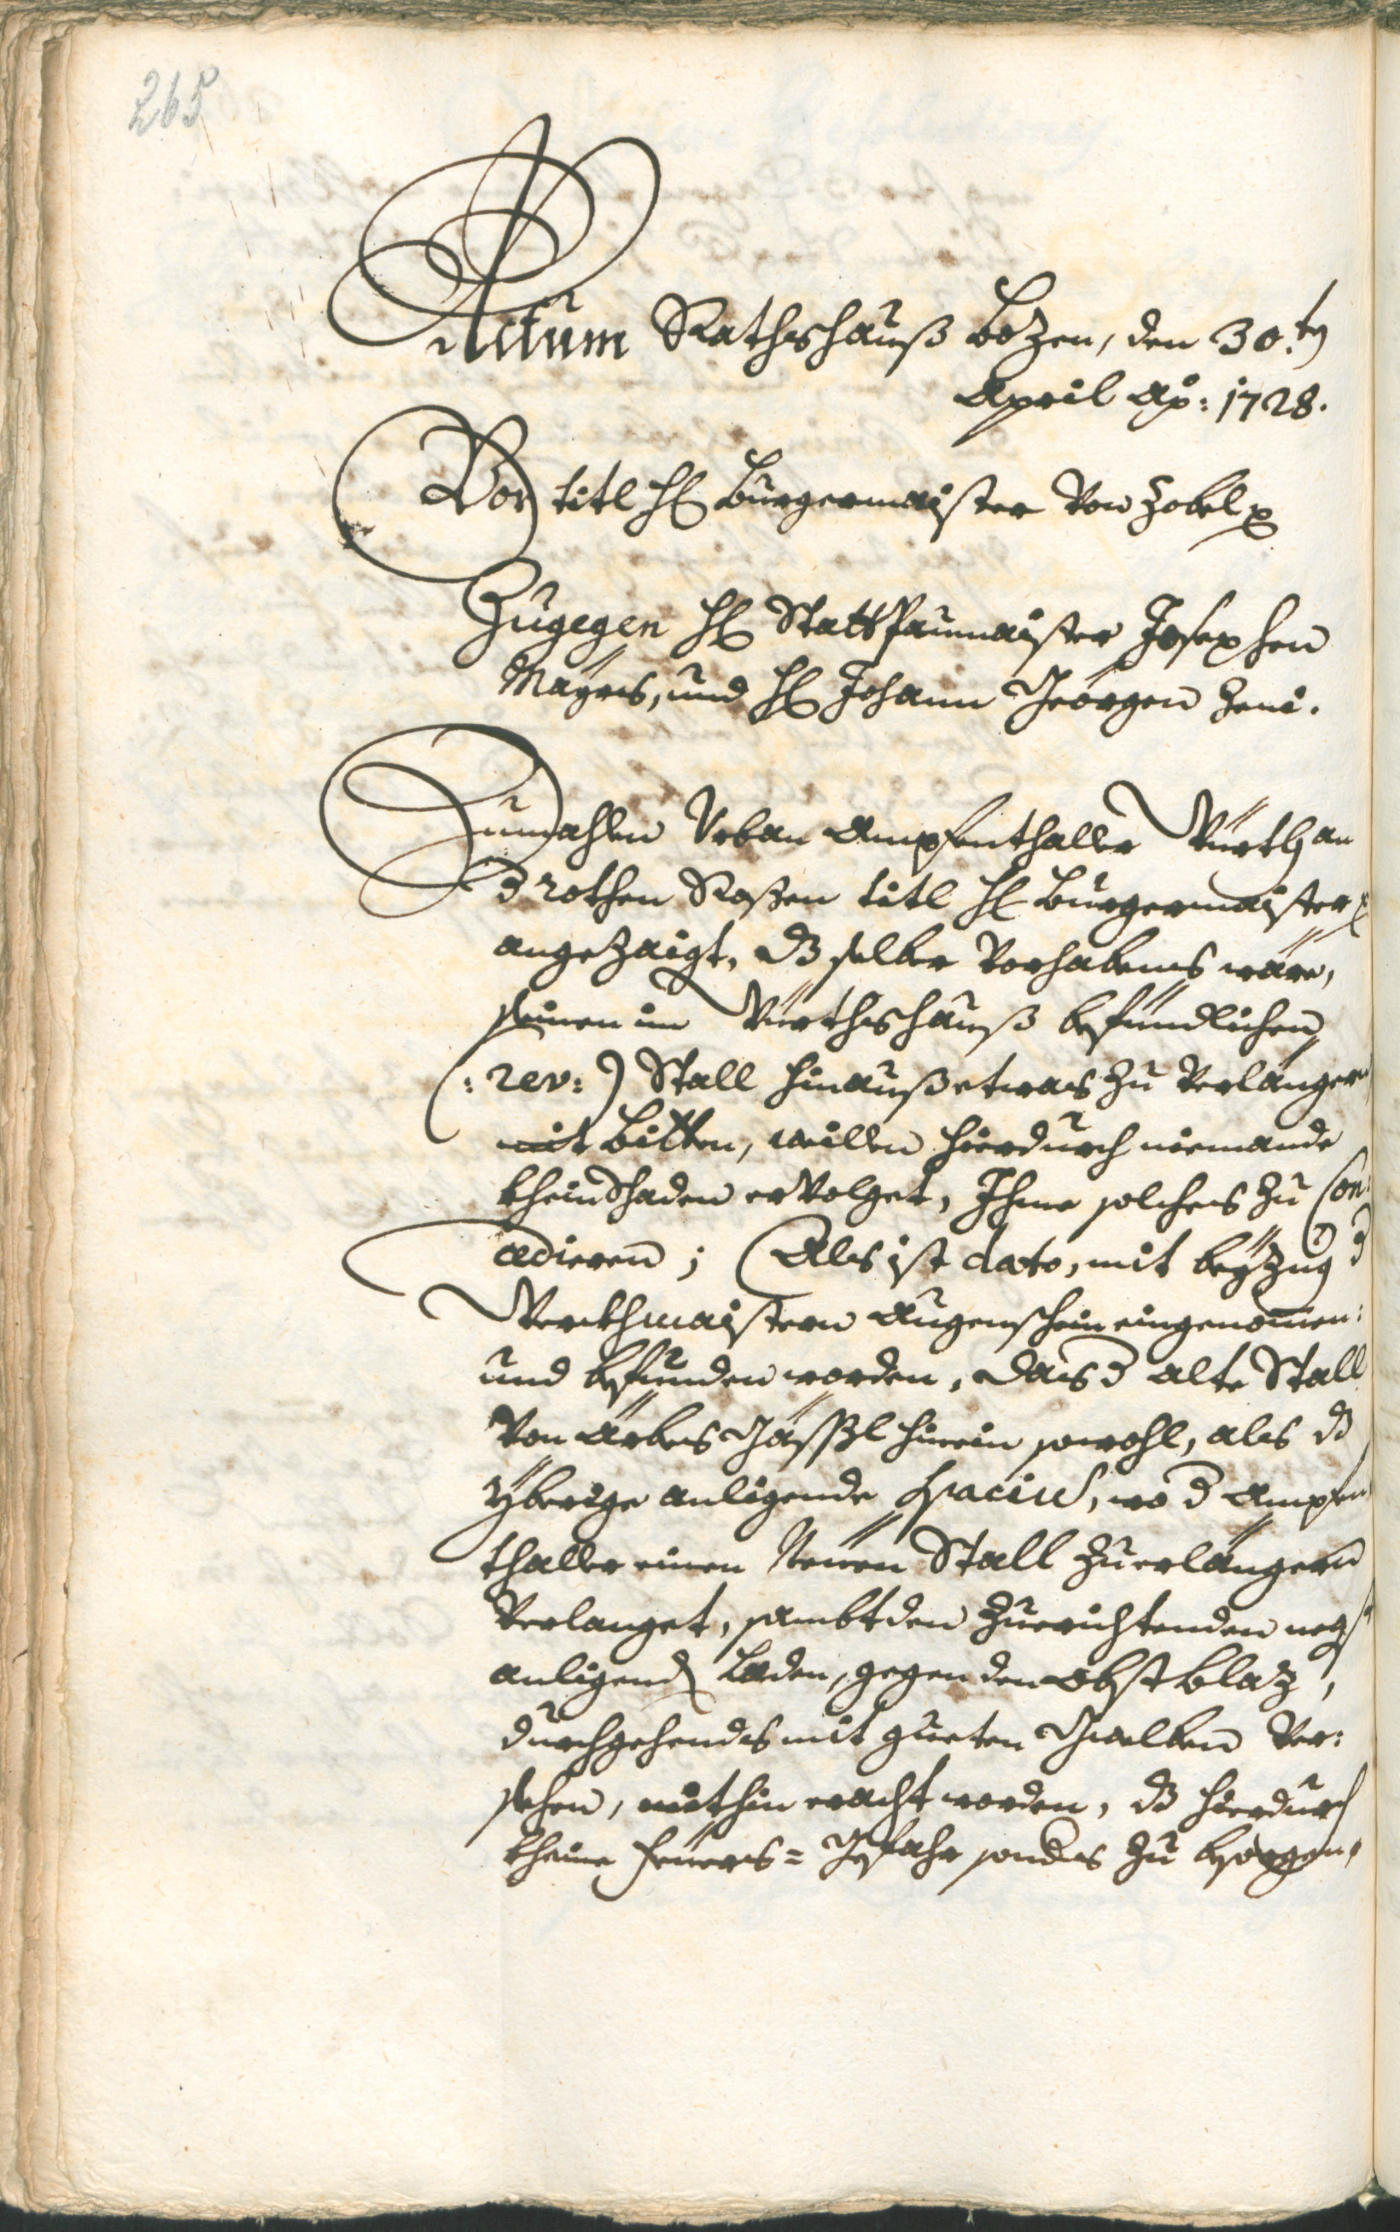 265
Actum Rathshauß Bozen, den 30.ten
April Ao: 1728.
Vor titl H Burgermaister Von Zobel
Zugegen H Stattpaumaister Josephen
Mayrs, und H Johann Geörgen Zeni.
Zumahlen Urban Ampfenthaller Würth an
d rothen Roßen titl H Burgermaister
angezaigt, dz selber Vorhabens wäre,
seinen im Würthshauß befündlichen
(: rev: ) Stall hinauß etwas zu Verlängern
mit Bitten, weillen hierdurch niemande
khein Schaden erVolget, Ihme solches zu Con:
cedieren; Als ist dato, mit beyzug d
Werkhmaistern Augenschein eingenomen:
und befunden worden, dass d alte Stall
Von Ärbes Gässl herein sowohl, als dz
yberige anligende spacium, wo d Ampfen
thaller einen Neuen Stall zuerlängern
Verlanget, sambt den zuerichtenden negst
anligend Laden, gegen den obstblaz,
durchgehends mit gueten Gwelben Ver:
sehen, mithin eracht worden, dz hierdurch
kheine feuers= Gefahr sonders zu besorgen,